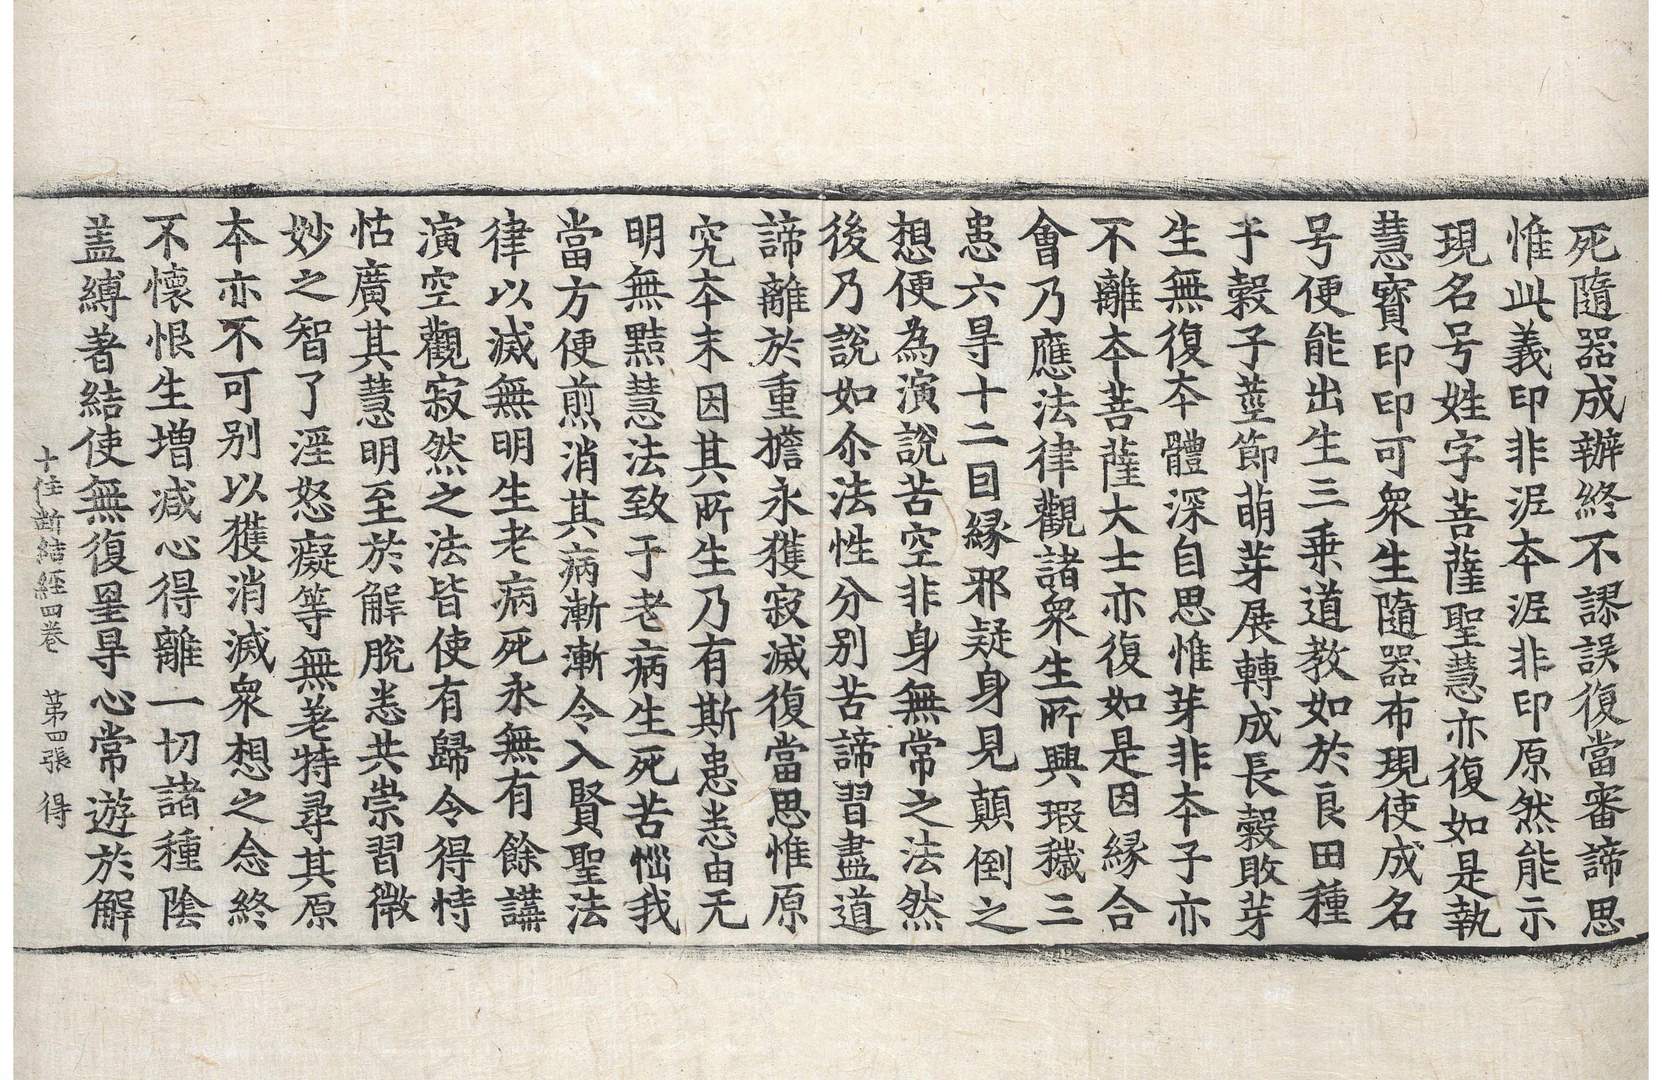 死隨器成辦終不謬誤復當審諦思
惟此義印非泥本泥非印原然能示
現名号姓字菩薩聖慧亦復如是執
慧寶印印可衆生隨器布現使成名
号便能出生三乗道教如於良田種
于穀子莖節萌芽展轉成長穀敗芽
生無復夲體深自思惟芽非夲子亦
不離夲菩薩大士亦復如是因縁合
會乃應法律觀諸衆生所興瑕穢三
恚六㝵十二因縁邪疑身見顛倒之
想便為演說苦空非身無常之法然
後乃說如尒法性分別苦諦習盡道
諦離於重擔永獲寂滅復當思惟原
究夲末因其所生乃有斯恚恚由无
明無黠慧法致于老病生死苦惱我
當方便煎消其病漸漸令入賢聖法
律以滅無明生老病死永無有餘講
演空觀寂然之法皆使有歸令得恃
怙廣其慧明至於解脫恚共崇習微
妙之智了淫怒癡等無差特尋其原
夲亦不可別以獲消滅衆想之念終
不懷恨生增减心得離一切諸種陰
盖縛著結使無復罣㝵心常遊於解
十住断結経四巻　苐四張　得